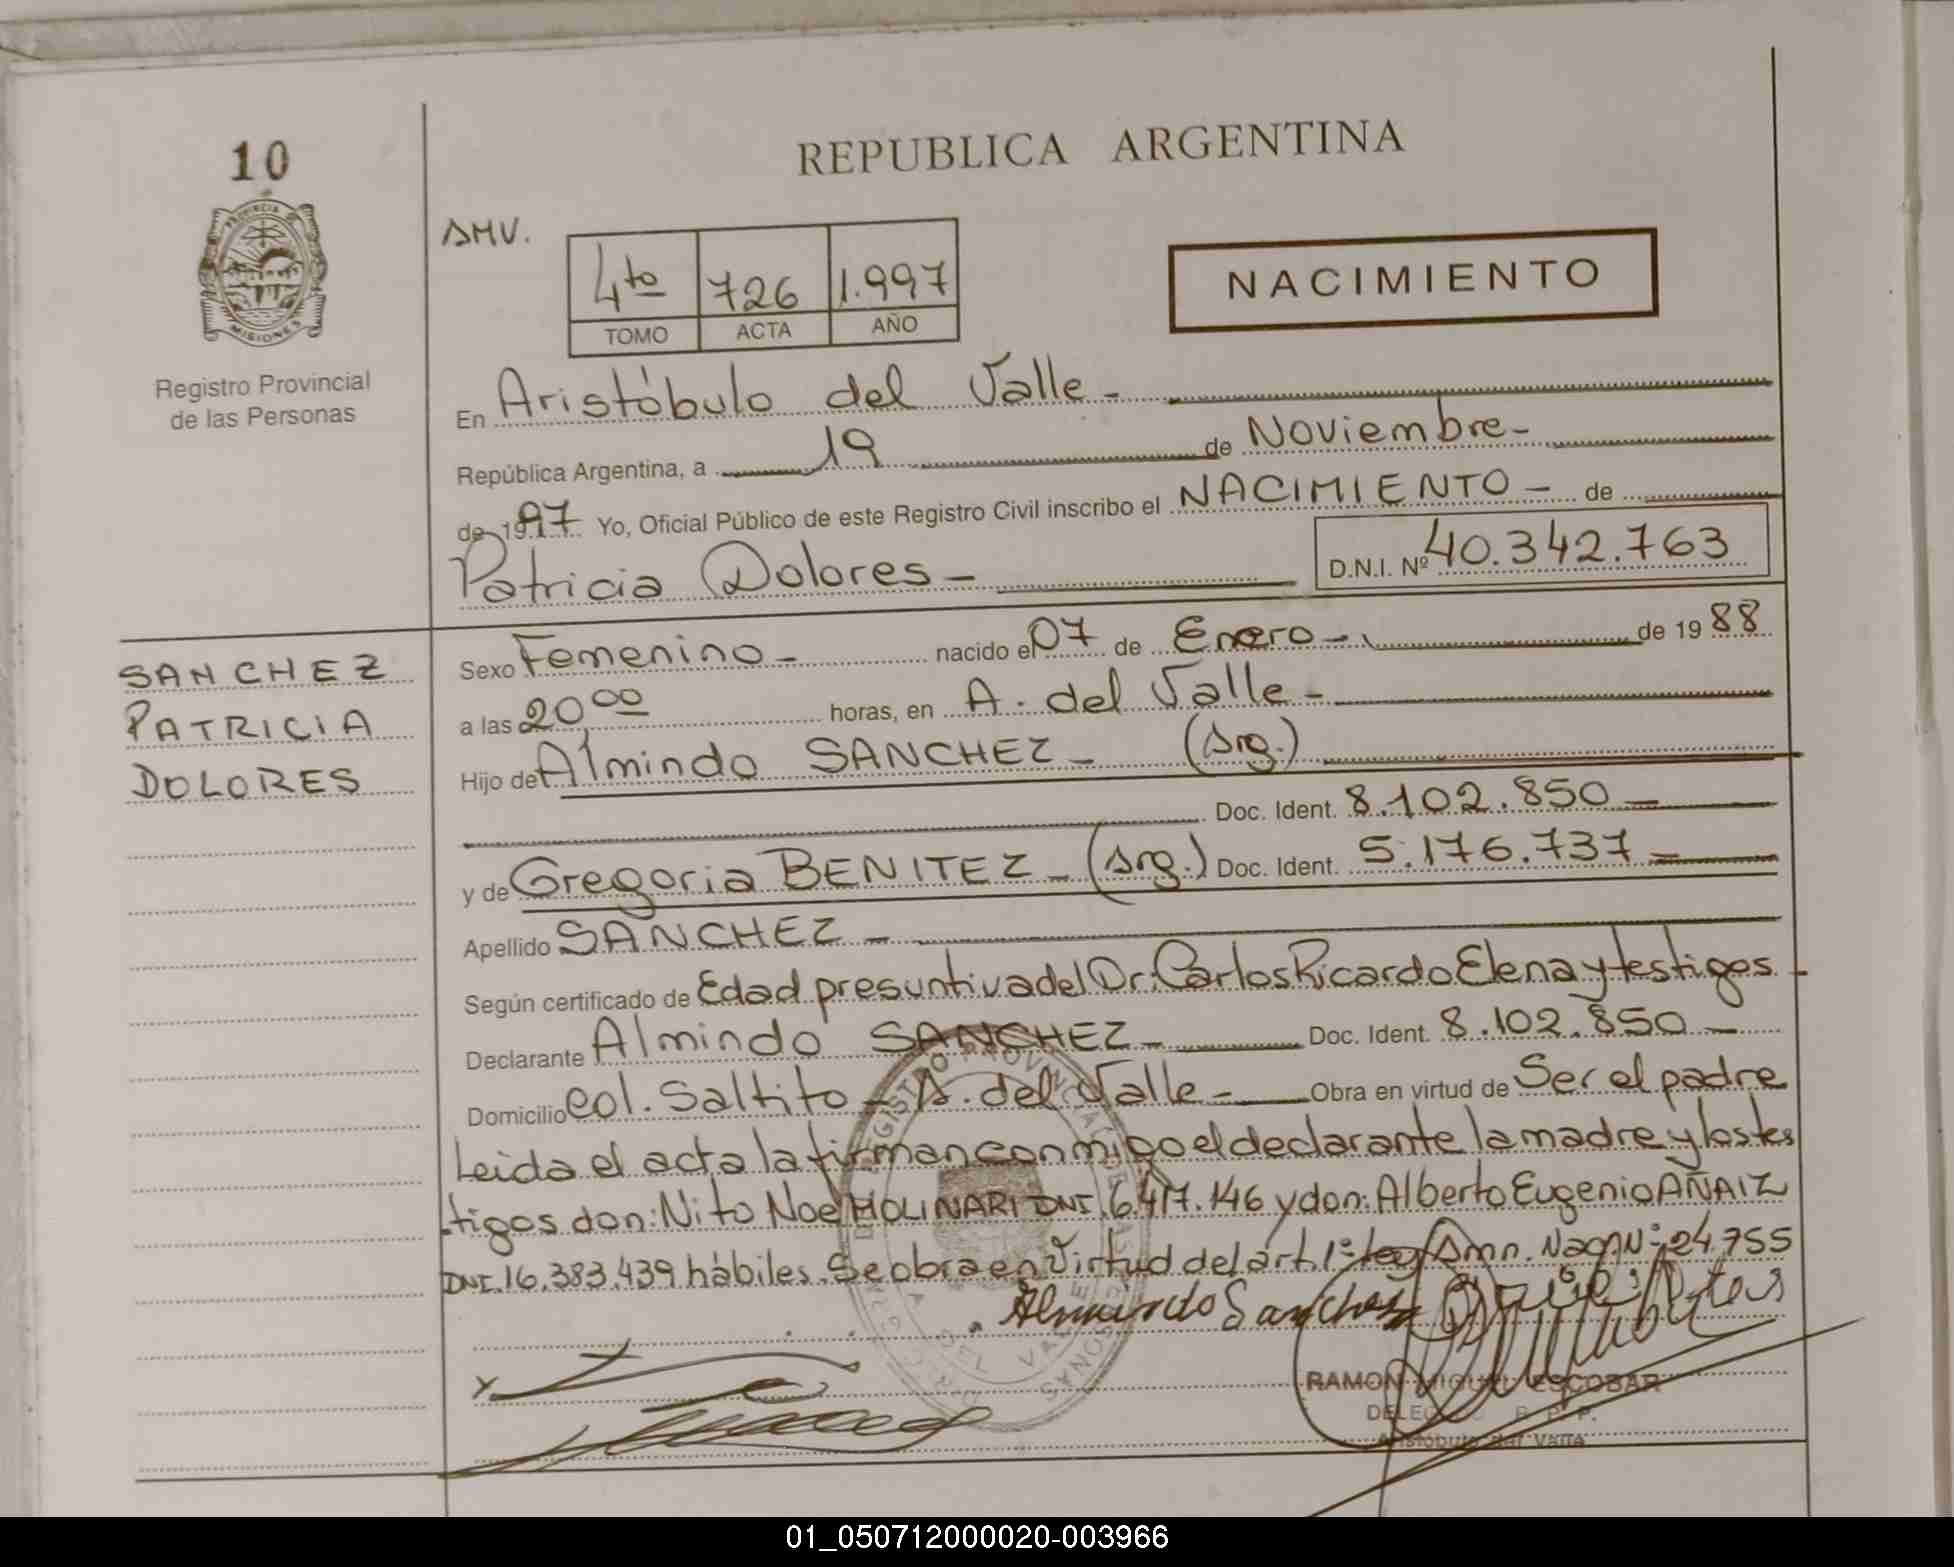 10
REPUBLICA ARGENTINA
PROVINCIA DE
MISIONES
Registro Provincial
de las Personas
SMV.
4to 726 1.997
TOMO ACTA AÑO
NACIMIENTO
En Aristóbulo del Valle -
República Argentina, a 19 de Noviembre -
de 1997 Yo, Oficial Público de este Registro Civil inscribo el NACIMIENTO - de
Patricia Dolores - D.N.I. Nº 40.342.763
SANCHEZ
PATRICIA
DOLORES
Sexo Femenino - nacido el 07 de Enero - de 19 88
a las 20 00 horas, en A. del Valle -
Hijo de Almindo SANCHEZ - (Arg.)
Doc. Ident. 8.102.850 -
y de Gregoria BENITEZ - (Arg.) Doc. Ident. 5.176.737 -
Apellido SANCHEZ -
Según certificado de Edad presuntiva del Dr. Carlos Ricardo Elena y testigos -
Declarante Almindo SANCHEZ - Doc. Ident. 8.102.850 -
Domicilio Col. Saltito - A. del Valle - Obra en virtud de Ser el padre
Leida el acta la firman conmigo el declarante la madre y los tes
tigos don: Nito Noe MOLINARI DNI. 6.417.146 y don: Alberto Eugenio AÑAIZ
DNI. 16.383.439 hábiles. Se obra en Virtud del art. 1º ley Amn. Nac. Nº 24.755
Almindo Sanchez
RAMON MIGUEL ESCOBAR
DELEGADO R. P. P.
Aristóbulo del Valle
01_050712000020-003966